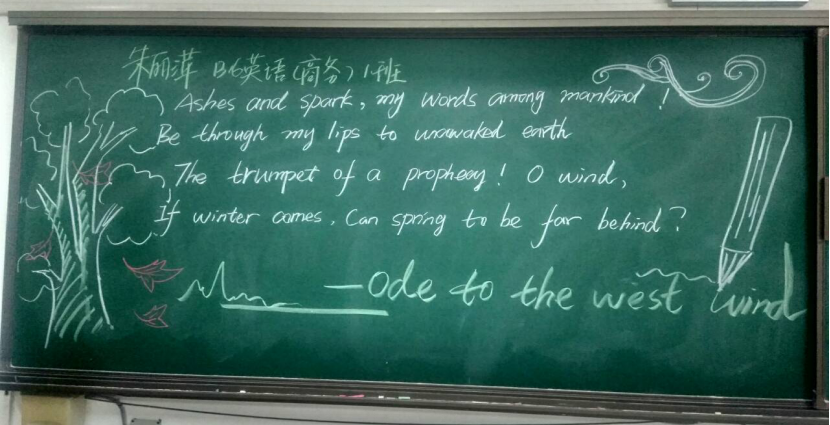 朱丽萍 B6英语(商务)1班
Ashes and spark, my words among mankind!
Be through my lips to unawaked earth
The trumpet of a prophecy! O wind,
If winter comes, Can spring to be far behind?
—Ode to the west wind